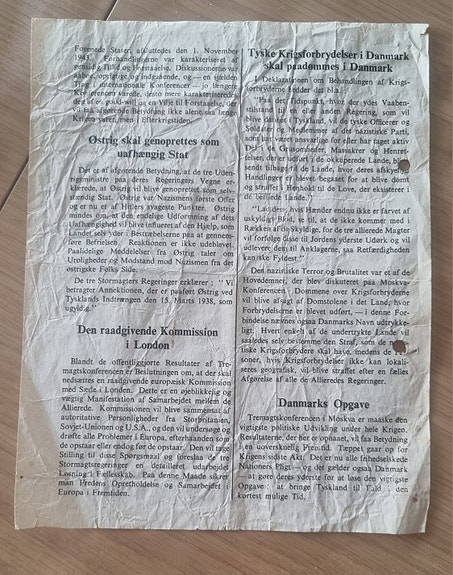 Forenede Stater, afsluttedes den 1. November
1943. Forhandlingerne var karakteriseret af
gensidig Tillid og Forstaaelse. Diskussionerne var
aabne, oprigtige og indgaaende, og — en sjælden
Ting i internationale Konferencer — jo længere
Konferencen varede, desto mere karakteriseredes
den af et good-will og en Vilje til Forstaaelse, der
vil faa afgørende Betydning ikke alene saa længe
Krigen varer, men i Efterkrigstiden.
Østrig skal genoprettes som
uafhængig Stat
Det er af afgørende Betydning, at de tre Uden-
rigsministre paa deres Regeringers Vegne er-
klærede, at Østrig vil blive genoprettet som selv-
stændig Stat. Østrig var Nazismens første Offer
og er nu et af Hitlers svageste Punkter. Østrig
mindes om, at den endelige Udformning af dets
Uafhængighed vil blive influeret af den Hjælp, som
Landet selv yder i Bestræbelserne paa at gennem-
føre Befrielsen. Reaktionen er ikke udeblevet.
Paalidelige Meddelelser fra Østrig taler om
Uroligheder og Modstand mod Nazismen fra det
østrigske Folks Side.
De tre Stormagters Regeringer erklærer : " Vi
betragter Annektionen, der er paaført Østrig ved
Tysklands Indtrængen den 15. Marts 1938, som
ugyldig."
Den raadgivende Kommission
i London
Blandt de offentliggjorte Resultater af Tre-
magtskonferencen er Beslutningen om, at der skal
nedsættes en raadgivende europæisk Kommission
med Sæde i London. Dette er en øjeblikkelig og
vægtig Manifestation af Samarbejdet mellem de
Allierede. Kommissionen vil blive sammensat af
autoritative Personligheder fra Storbritannien,
Sovjet-Unionen og U.S.A., og den vil undersøge og
drøfte alle Problemer i Europa, efterhaanden som
de opstaar eller endog før de opstaar. Den vil tage
Stilling til disse Spørgsmaal og foreslaa de tre
Stormagtsregeringer en detailleret udarbejdet
Løsning i Fællesskab. Paa denne Maade sikrer
man Fredens Opretholdelse og Samarbejdet i
Europa i Fremtiden.
Tyske Krigsforbrydelser i Danmark
skal paadømmes i Danmark
I Deklarationen om Behandlingen af Krigs-
forbryderne hedder det bl.a.:
"Paa det Tidspunkt, hvor der ydes Vaaben-
stilstand til en eller anden Regering, som vil
blive dannet i Tyskland, vil de tyske Officerer og
Soldater og Medlemmer af det nazistiske Parti,
som har været ansvarlige for eller har taget aktiv
Del i de Grusomheder, Massakrer og Henret-
telser, der er udført i de okkuperede Lande, blive
sendt tilbage til de Lande, hvor deres afskyelige
Handlinger er blevet begaaet for at blive dømt
og straffet i Henhold til de Love, der eksisterer i
de befriede Lande."
"Lad dem, hvis Hænder endnu ikke er farvet af
uskyldigt Blod, se til, at de ikke kommer med i
Rækken af de Skyldige, for de tre allierede Magter
vil forfølge disse til Jordens yderste Udørk og vil
udlevere dem til Anklagerne, saa Retfærdigheden
kan ske Fyldest."
Den nazistiske Terror og Brutalitet var et af de
Hovedemner, der blev diskuteret paa Moskva-
Konferencen. Dommene over Krigsforbryderne
vil blive afsagt af Domstolene i det Land, hvor
Forbrydelserne er blevet udført, — i denne For-
bindelse nævnes ogsaa Danmarks Navn udtrykke-
ligt. Hvert enkelt af de undertrykte Lande vil
saaledes selv bestemme den Straf, som de
tiske Krigsforbrydere skal have, medens de
oner, hvis Krigsforbrydelser ikke kan lokali-
seres geografisk, vil blive straffet efter en fælles
Afgørelse af alle de Allieredes Regeringer.
Danmarks Opgave
Tremagtskonferencen i Moskva er maaske den
vigtigste politiske Udvikling under hele Krigen.
Resultaterne, der her er opnaaet, vil faa Betydning
i en uoverskuelig Fremtid. Tæppet gaar op for
Krigens sidste Akt. Det er nu alle frihedselskede
Nationers Pligt — og det gælder ogsaa Danmark
— at gøre deres yderste for at løse den vigtigste
Opgave : at bringe Tyskland til Fald i den
kortest mulige Tid.